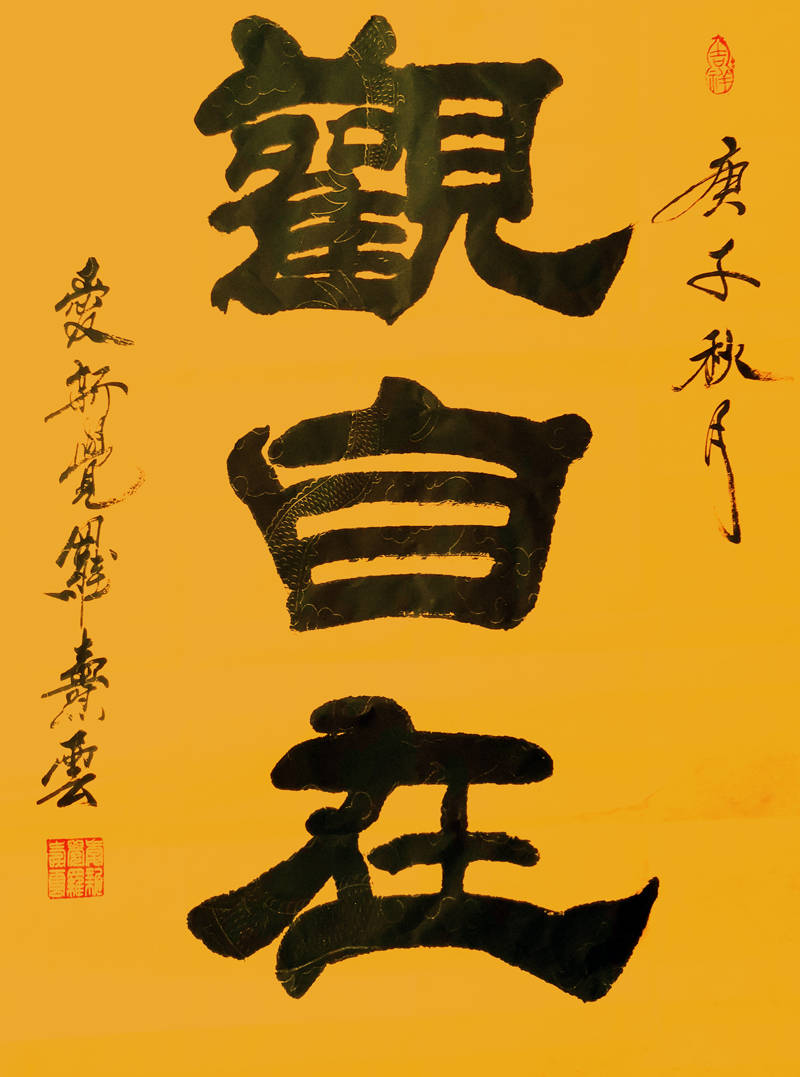 吉祥
庚子秋月
觀自在
愛新覺羅燾雲
愛新
覺羅